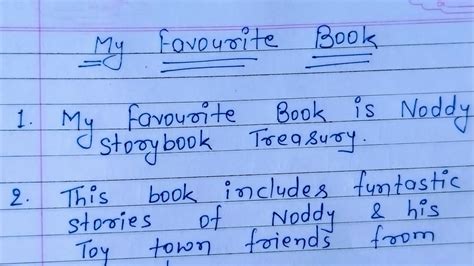 My Favourite Book
1. My Favourite Book is Noddy
Storybook Treasury.
2. This book includes funtastic
stories of Noddy & his
Toy town friends from